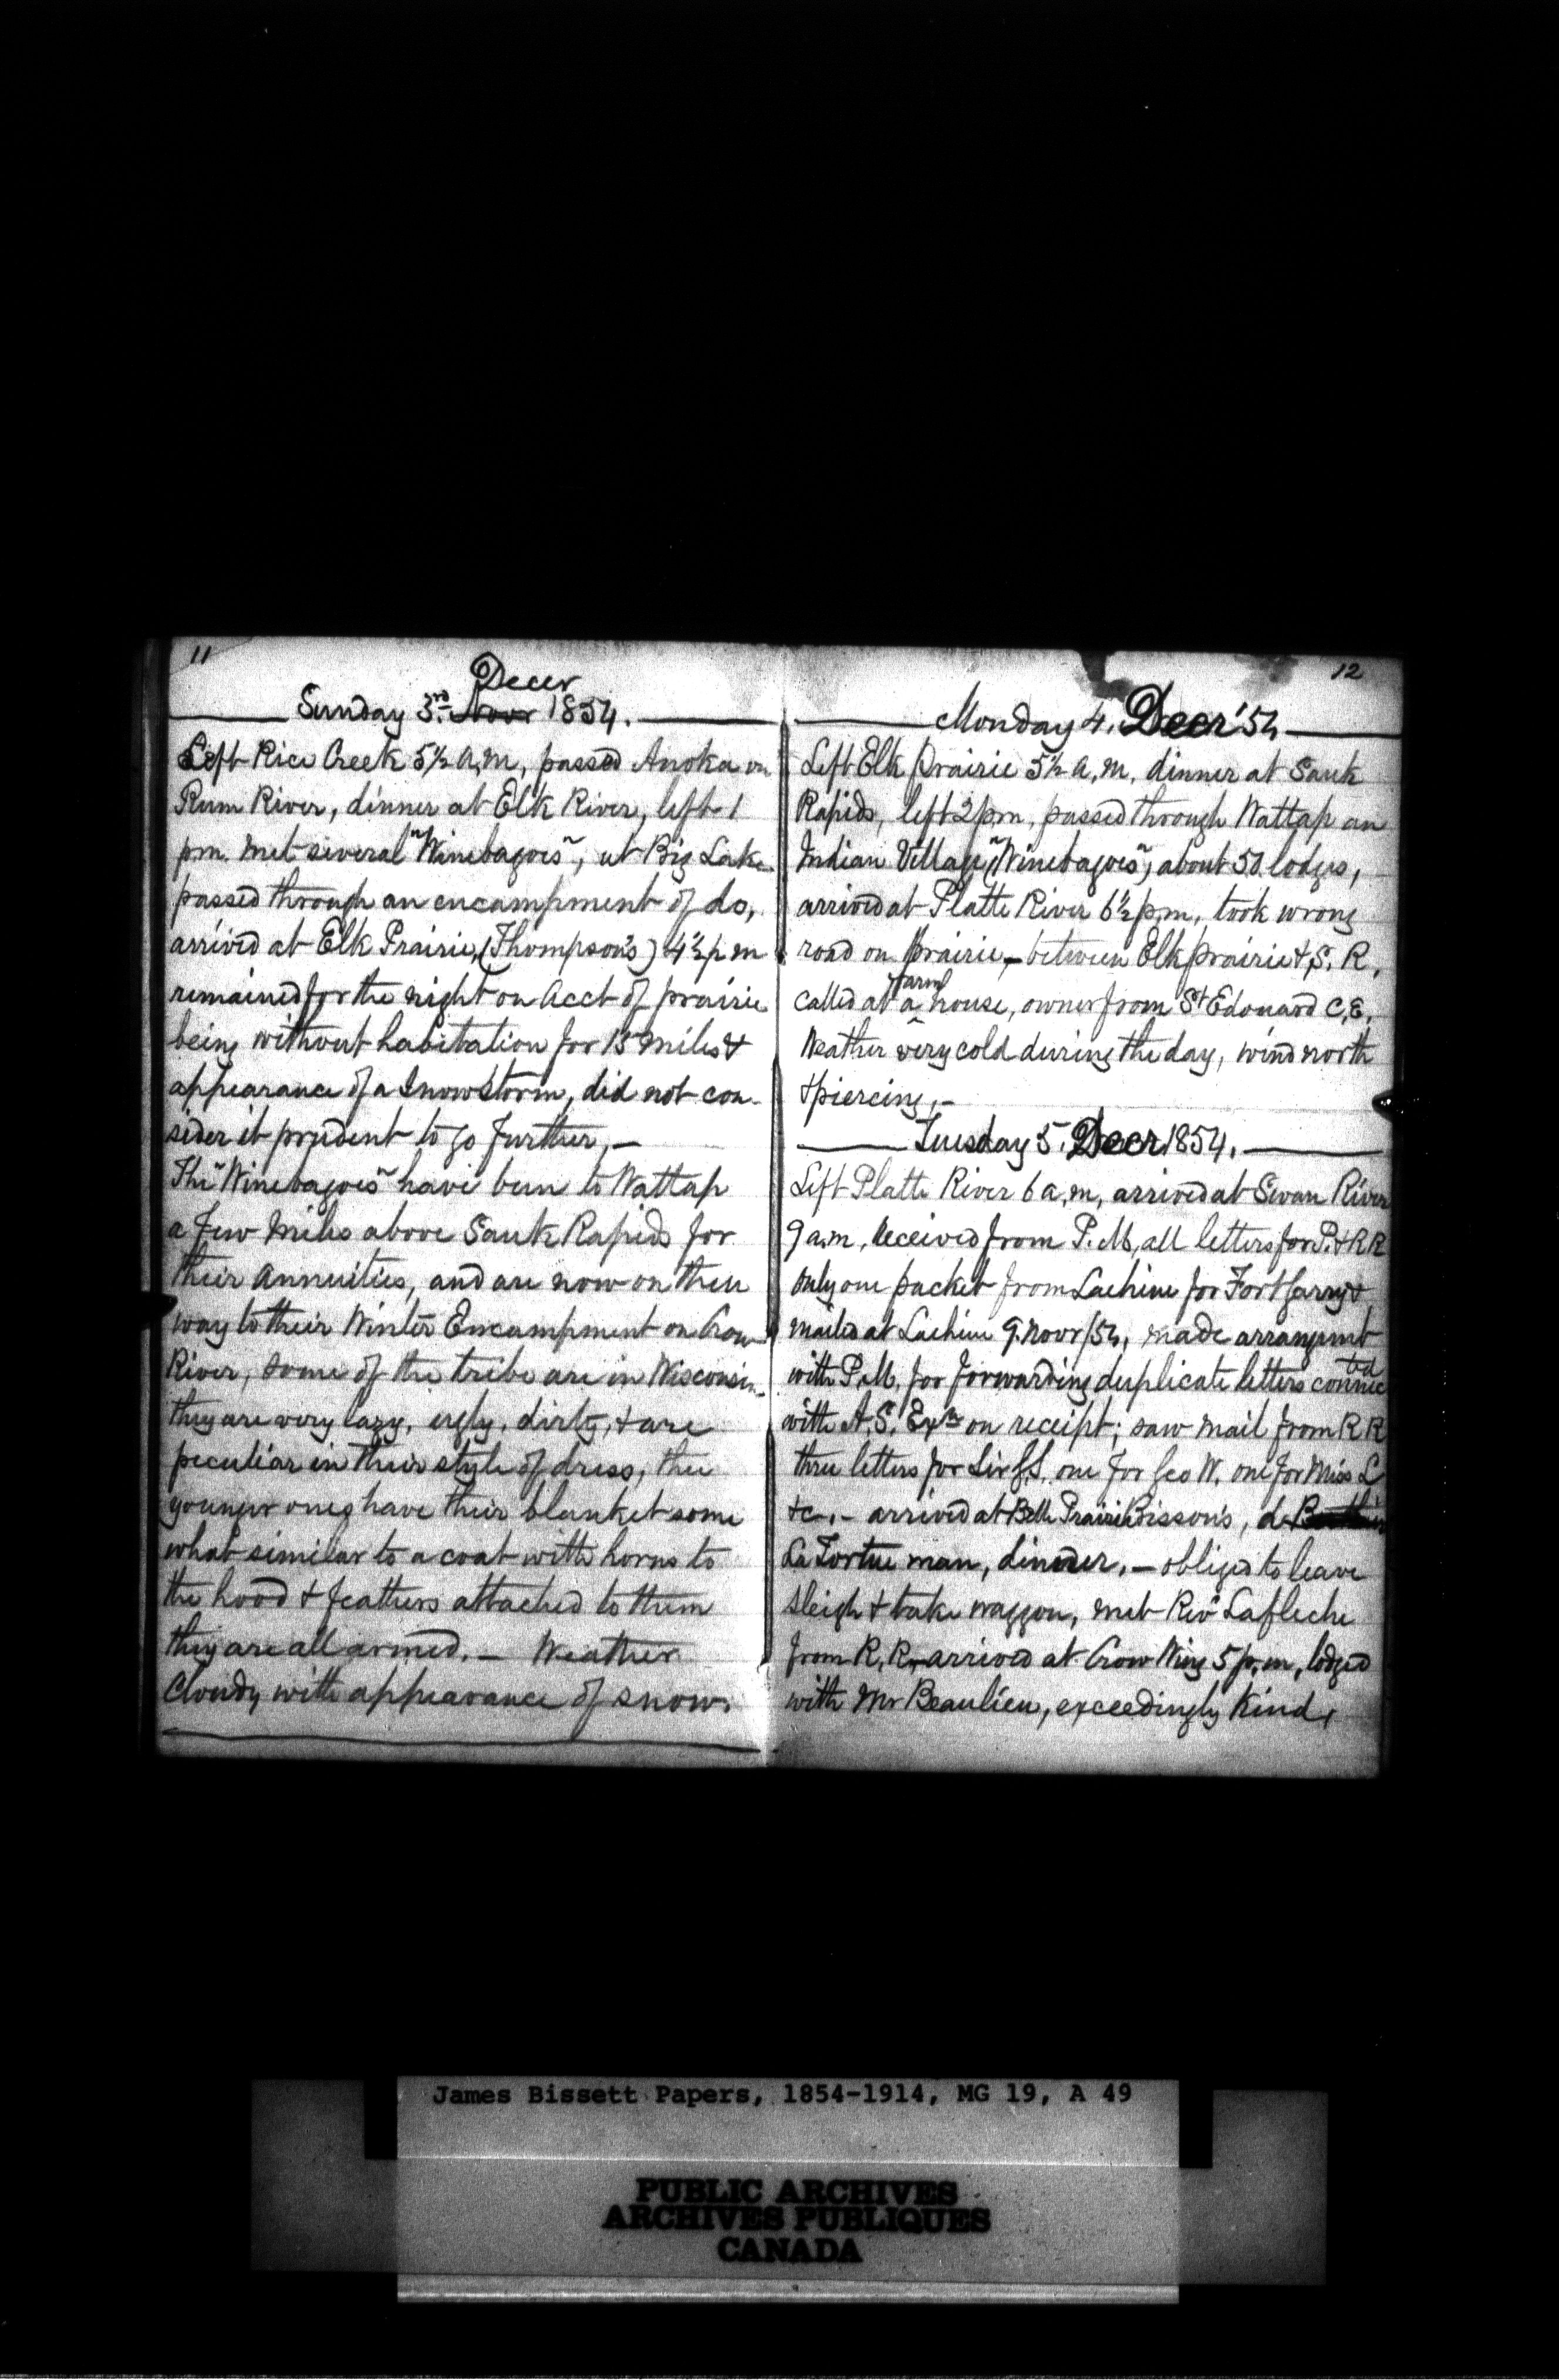 11
Decer
Sunday 3rd. Novr 1854.
Left Rice Creek 5½ a,m, passed Anoka on
Rum River, dinner at Elk River, left 1
pm. met several "Winebagoes", at Big Lake
passed through an encampment of do,
arrived at Elk Prairie, (Thompson's) 4½ p m
remained for the night on acct of prairie
being without habitation for 15 miles &
appearance of a Snow Storm, did not con-
sider it prudent to go further,—
The "Winebagoes" have been to Wattap
a few miles above Sauk Rapids for
their annuities, and are now on their
way to their Winter Encampment on Crow
River, some of the tribe are in Wisconsin,
they are very lazy, ugly, dirty, & are
peculiar in their style of dress, the
younger ones have their blanket some
what similar to a coat with horns to
the hood & feathers attached to them
they are all armed.— Weather
Cloudy with appearance of snow.
12
Monday 4. Decr '54
Left Elk Prairie 5½ a,m, dinner at Sauk
Rapids, left 2 pm, passed through Wattap an
Indian Village ("Winebagoes") about 50 lodges,
arrived at Platte River 6½ p,m, took wrong
road on Prairie,— between Elk prairie & S. R.
called at a farm house, owner from St Edouard C,E,
Weather very cold during the day, wind north
& piercing,—
Tuesday 5. Decr 1854.
Left Platte River 6 a,m, arrived at Swan River
9 a,m, Received from P. M, all letters for P. & R R
only one packet from Lachine for Fort Garry &
mailed at Lachine 9. Novr/54, made arrangemt
with P.M. for forwarding duplicate letters connected
with A. S. Exn on receipt; saw mail from R R
three letters for Sir G.S. one for Geo W. one for Miss L
&c.— arrived at Belle Prairie Bisson's, de
La Tortue man, dinner.— obliged to leave
sleigh & take waggon, met Revd Lafleche
from R, R, arrived at Crow Wing 5 p,m, lodged
with Mr Beaulieu, exceedingly kind,
James Bissett Papers, 1854-1914, MG 19, A 49
PUBLIC ARCHIVES
ARCHIVES PUBLIQUES
CANADA